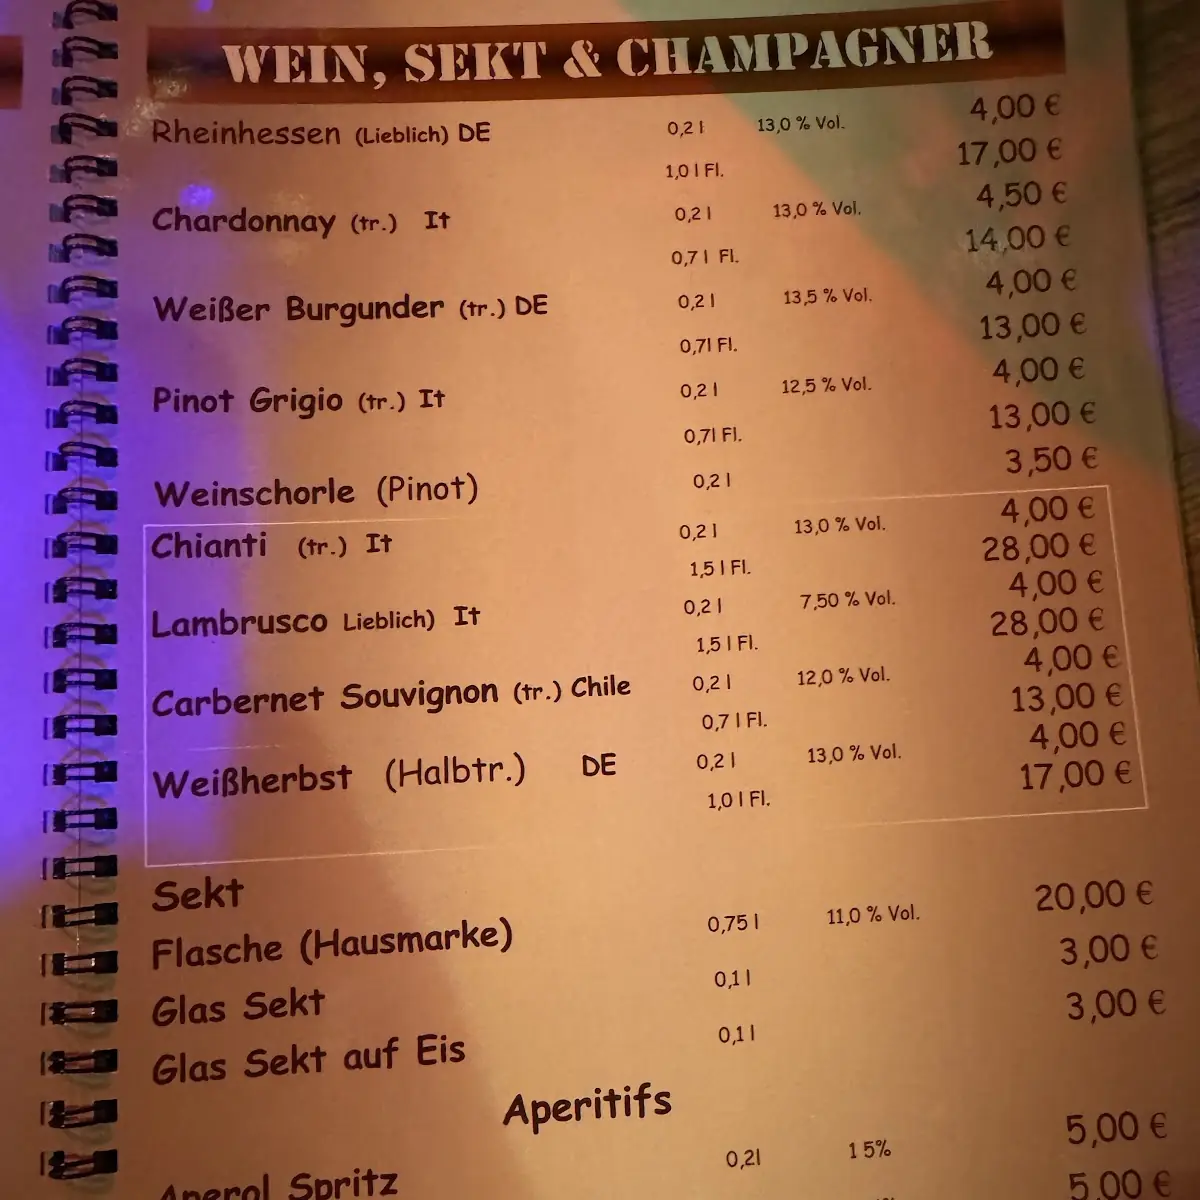 WEIN, SEKT & CHAMPAGNER
Rheinhessen (Lieblich) DE 0,2 l 13,0 % Vol. 4,00 €
1,0 l Fl. 17,00 €
Chardonnay (tr.) It 0,2 l 13,0 % Vol. 4,50 €
0,7 l Fl. 14,00 €
Weißer Burgunder (tr.) DE 0,2 l 13,5 % Vol. 4,00 €
0,7l Fl. 13,00 €
Pinot Grigio (tr.) It 0,2 l 12,5 % Vol. 4,00 €
0,7l Fl. 13,00 €
Weinschorle (Pinot) 0,2 l 3,50 €
Chianti (tr.) It 0,2 l 13,0 % Vol. 4,00 €
1,5 l Fl. 28,00 €
Lambrusco Lieblich) It 0,2 l 7,50 % Vol. 4,00 €
1,5 l Fl. 28,00 €
Carbernet Souvignon (tr.) Chile 0,2 l 12,0 % Vol. 4,00 €
0,7 l Fl. 13,00 €
Weißherbst (Halbtr.) DE 0,2 l 13,0 % Vol. 4,00 €
1,0 l Fl. 17,00 €
Sekt
Flasche (Hausmarke) 0,75 l 11,0 % Vol. 20,00 €
Glas Sekt 0,1 l 3,00 €
Glas Sekt auf Eis 0,1 l 3,00 €
Aperitifs
Aperol Spritz 0,2l 15% 5,00 €
5,00 €